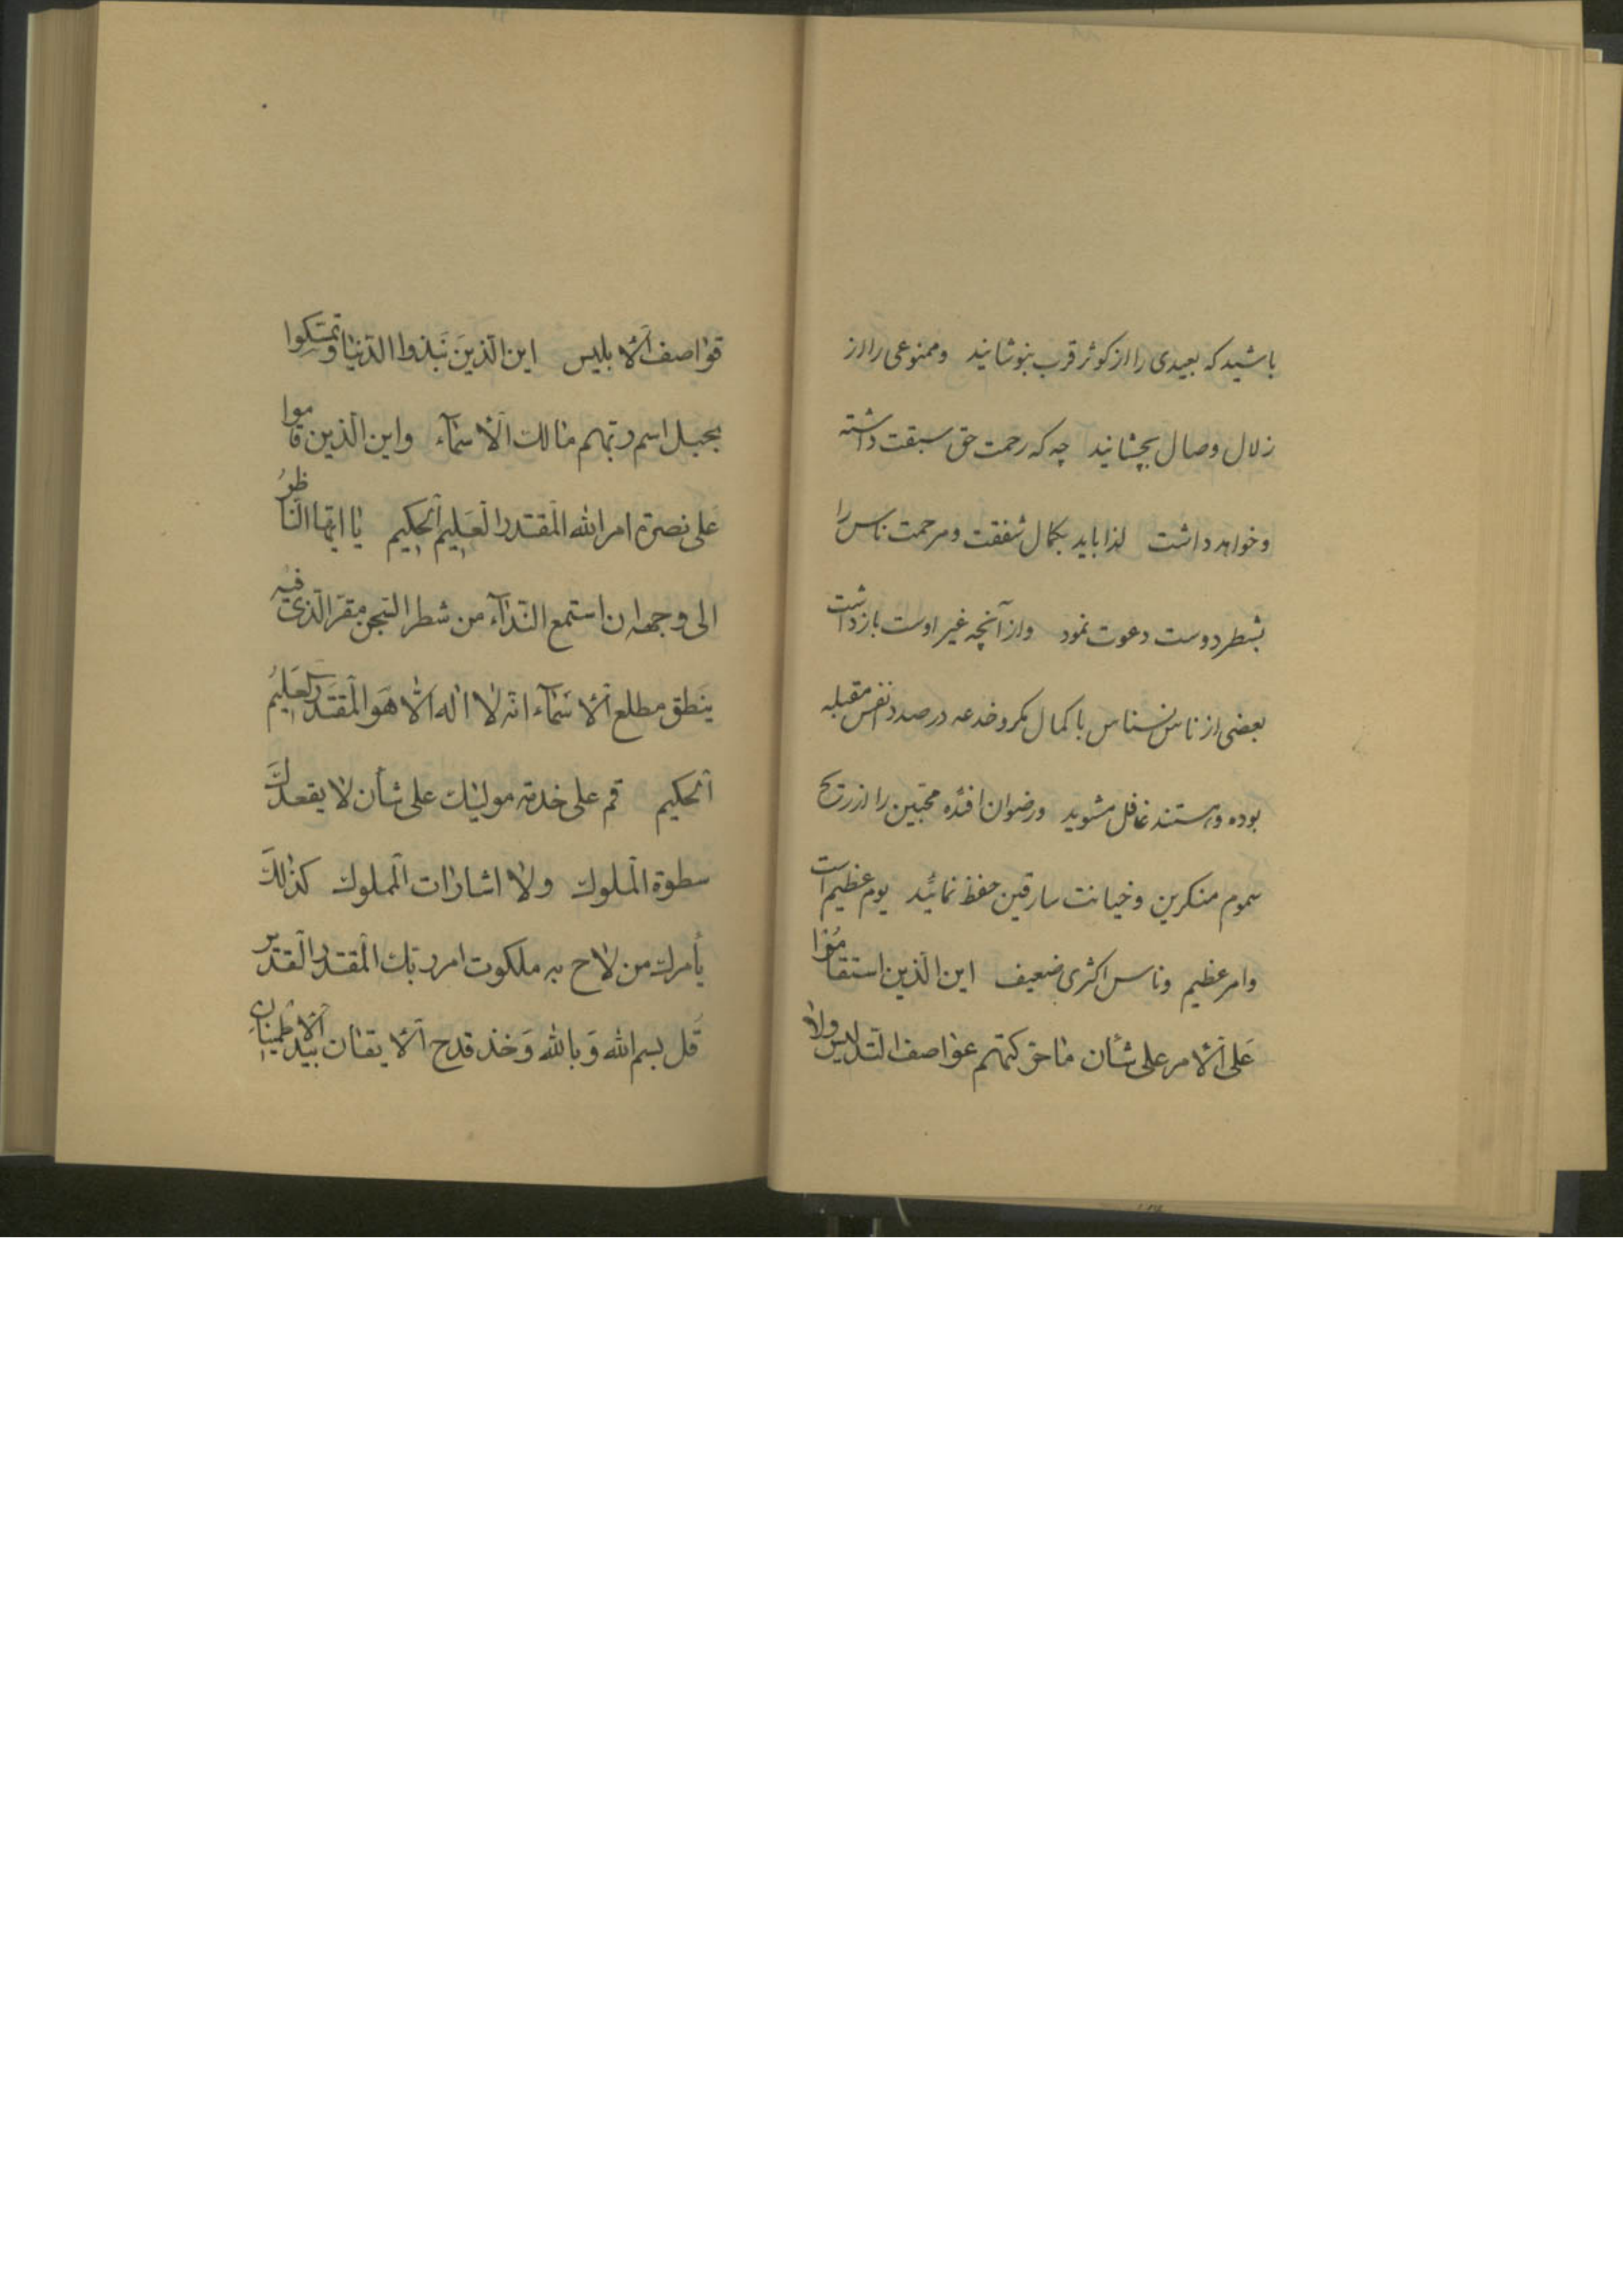 باشید که بعیدی را از کوثر قرب بنوشانید و ممنوعی را از
زلال وصال بچشانید چه که رحمت حق سبقت داشته
و خواهد داشت لذا باید بکمال شفقت و مرحمت ناس را
بشطر دوست دعوت نمود و از آنچه غیر اوست بازداشت
بعضی از ناس نسناس با کمال مکر و خدعه در صدد نفس مقبله
بوده و هستند غافل مشوید و رضوان افئده محبّین را از ریح
سموم منکرین و خیانت سارقین حفظ نمائید یوم عظیم است
و امر عظیم و ناس اکثری ضعیف این الّذین استقاموا
عَلی الْأمر علی شأن ما حرّکتهم عواصف التدلیس ولا
قواصف الْأبلیس این الّذینَ نَبَذوا الدّنیا و تمسّکوا
بحبل اسم ربّهم مالك الْأسمآء و این الّذین قاموا
عَلی نصرة امر الله الْمقتدر الْعَلیم الْحکیم یا ایّها النّاظرُ
الی وجهی ان استمع النّدآء من شطر السّجن مقرّ الّذی فیه
ینَطق مطلع الْأسَمآء انّه لا اله الّا هَو الْمقتَدر الْعَلیمُ
الْحکیم قم علی خدمة مولیك علی شأن لا یقعدكَ
سطوة الْملوك ولا اشارات الْمملوك کذلكَ
یأمرك من لاح به ملکوت امر ربّك الْمقتدر القدیر
قُل بسم الله وَ بالله وَ خذ قدح الْأیقان بید الْأطمینان